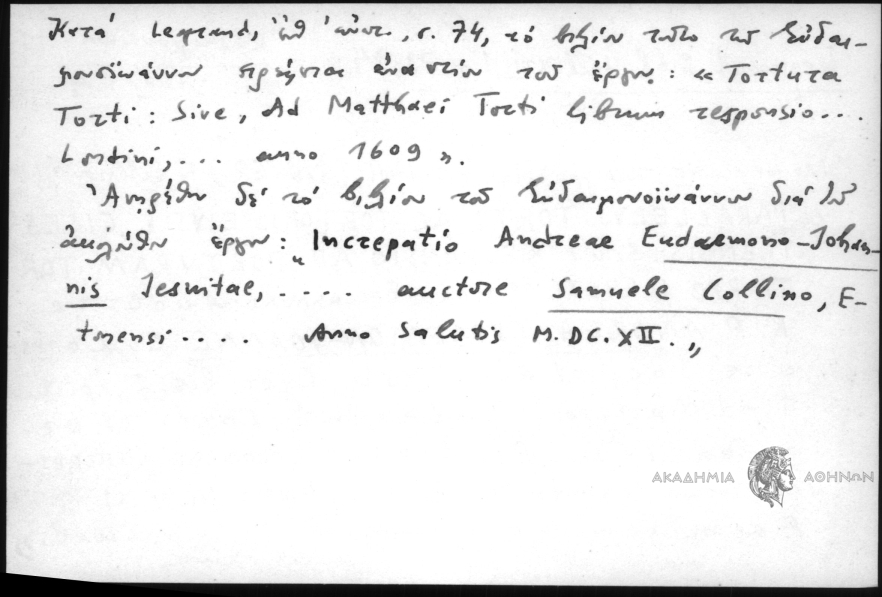 Κατά Legrand, ἔνθ' ἀνωτ., σ. 74, τό βιβλίον τοῦτο τοῦ Εὐδαι-
μονοϊωάννου εἶναι ἀναντίον τοῦ ἔργου: «Tortura
Torti: Sive, Ad Matthaei Torti librum responsio...
Londini,... anno 1609».
Ἀνῃρέθη δέ τό βιβλίον τοῦ Εὐδαιμονοϊωάννου διά τοῦ
ἀκολούθου ἔργου: "Increpatio Andreae Eudaemono-Johan-
nis Iesuitae, .... auctore Samuele Collino, E-
tonensi.... Anno Salutis M.DC.XII."
ΑΚΑΔΗΜΙΑ ΑΘΗΝΩΝ